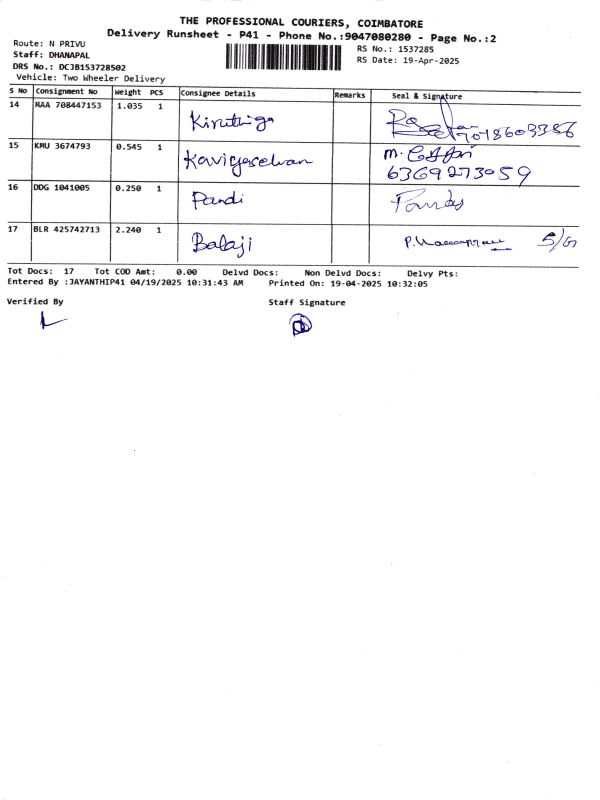 THE PROFESSIONAL COURIERS, COIMBATORE
Delivery Runsheet - P41 - Phone No.:9047080280 - Page No.:2
Route: N PRIVU
Staff: DHANAPAL
DRS No.: DCJB153728502
Vehicle: Two Wheeler Delivery
RS No.: 1537285
RS Date: 19-Apr-2025
S No Consignment No Weight PCS Consignee Details Remarks Seal & Signature
14 MAA 708447153 1.035 1 Kiruthiga
15 KMU 3674793 0.545 1 Kavigaselvan M.
6369273059
16 DDG 1041005 0.250 1 Pandi
17 BLR 425742713 2.240 1 Balaji
Tot Docs: 17 Tot COD Amt: 0.00 Delvd Docs: Non Delvd Docs: Delvy Pts:
Entered By :JAYANTHIP41 04/19/2025 10:31:43 AM Printed On: 19-04-2025 10:32:05
Verified By Staff Signature